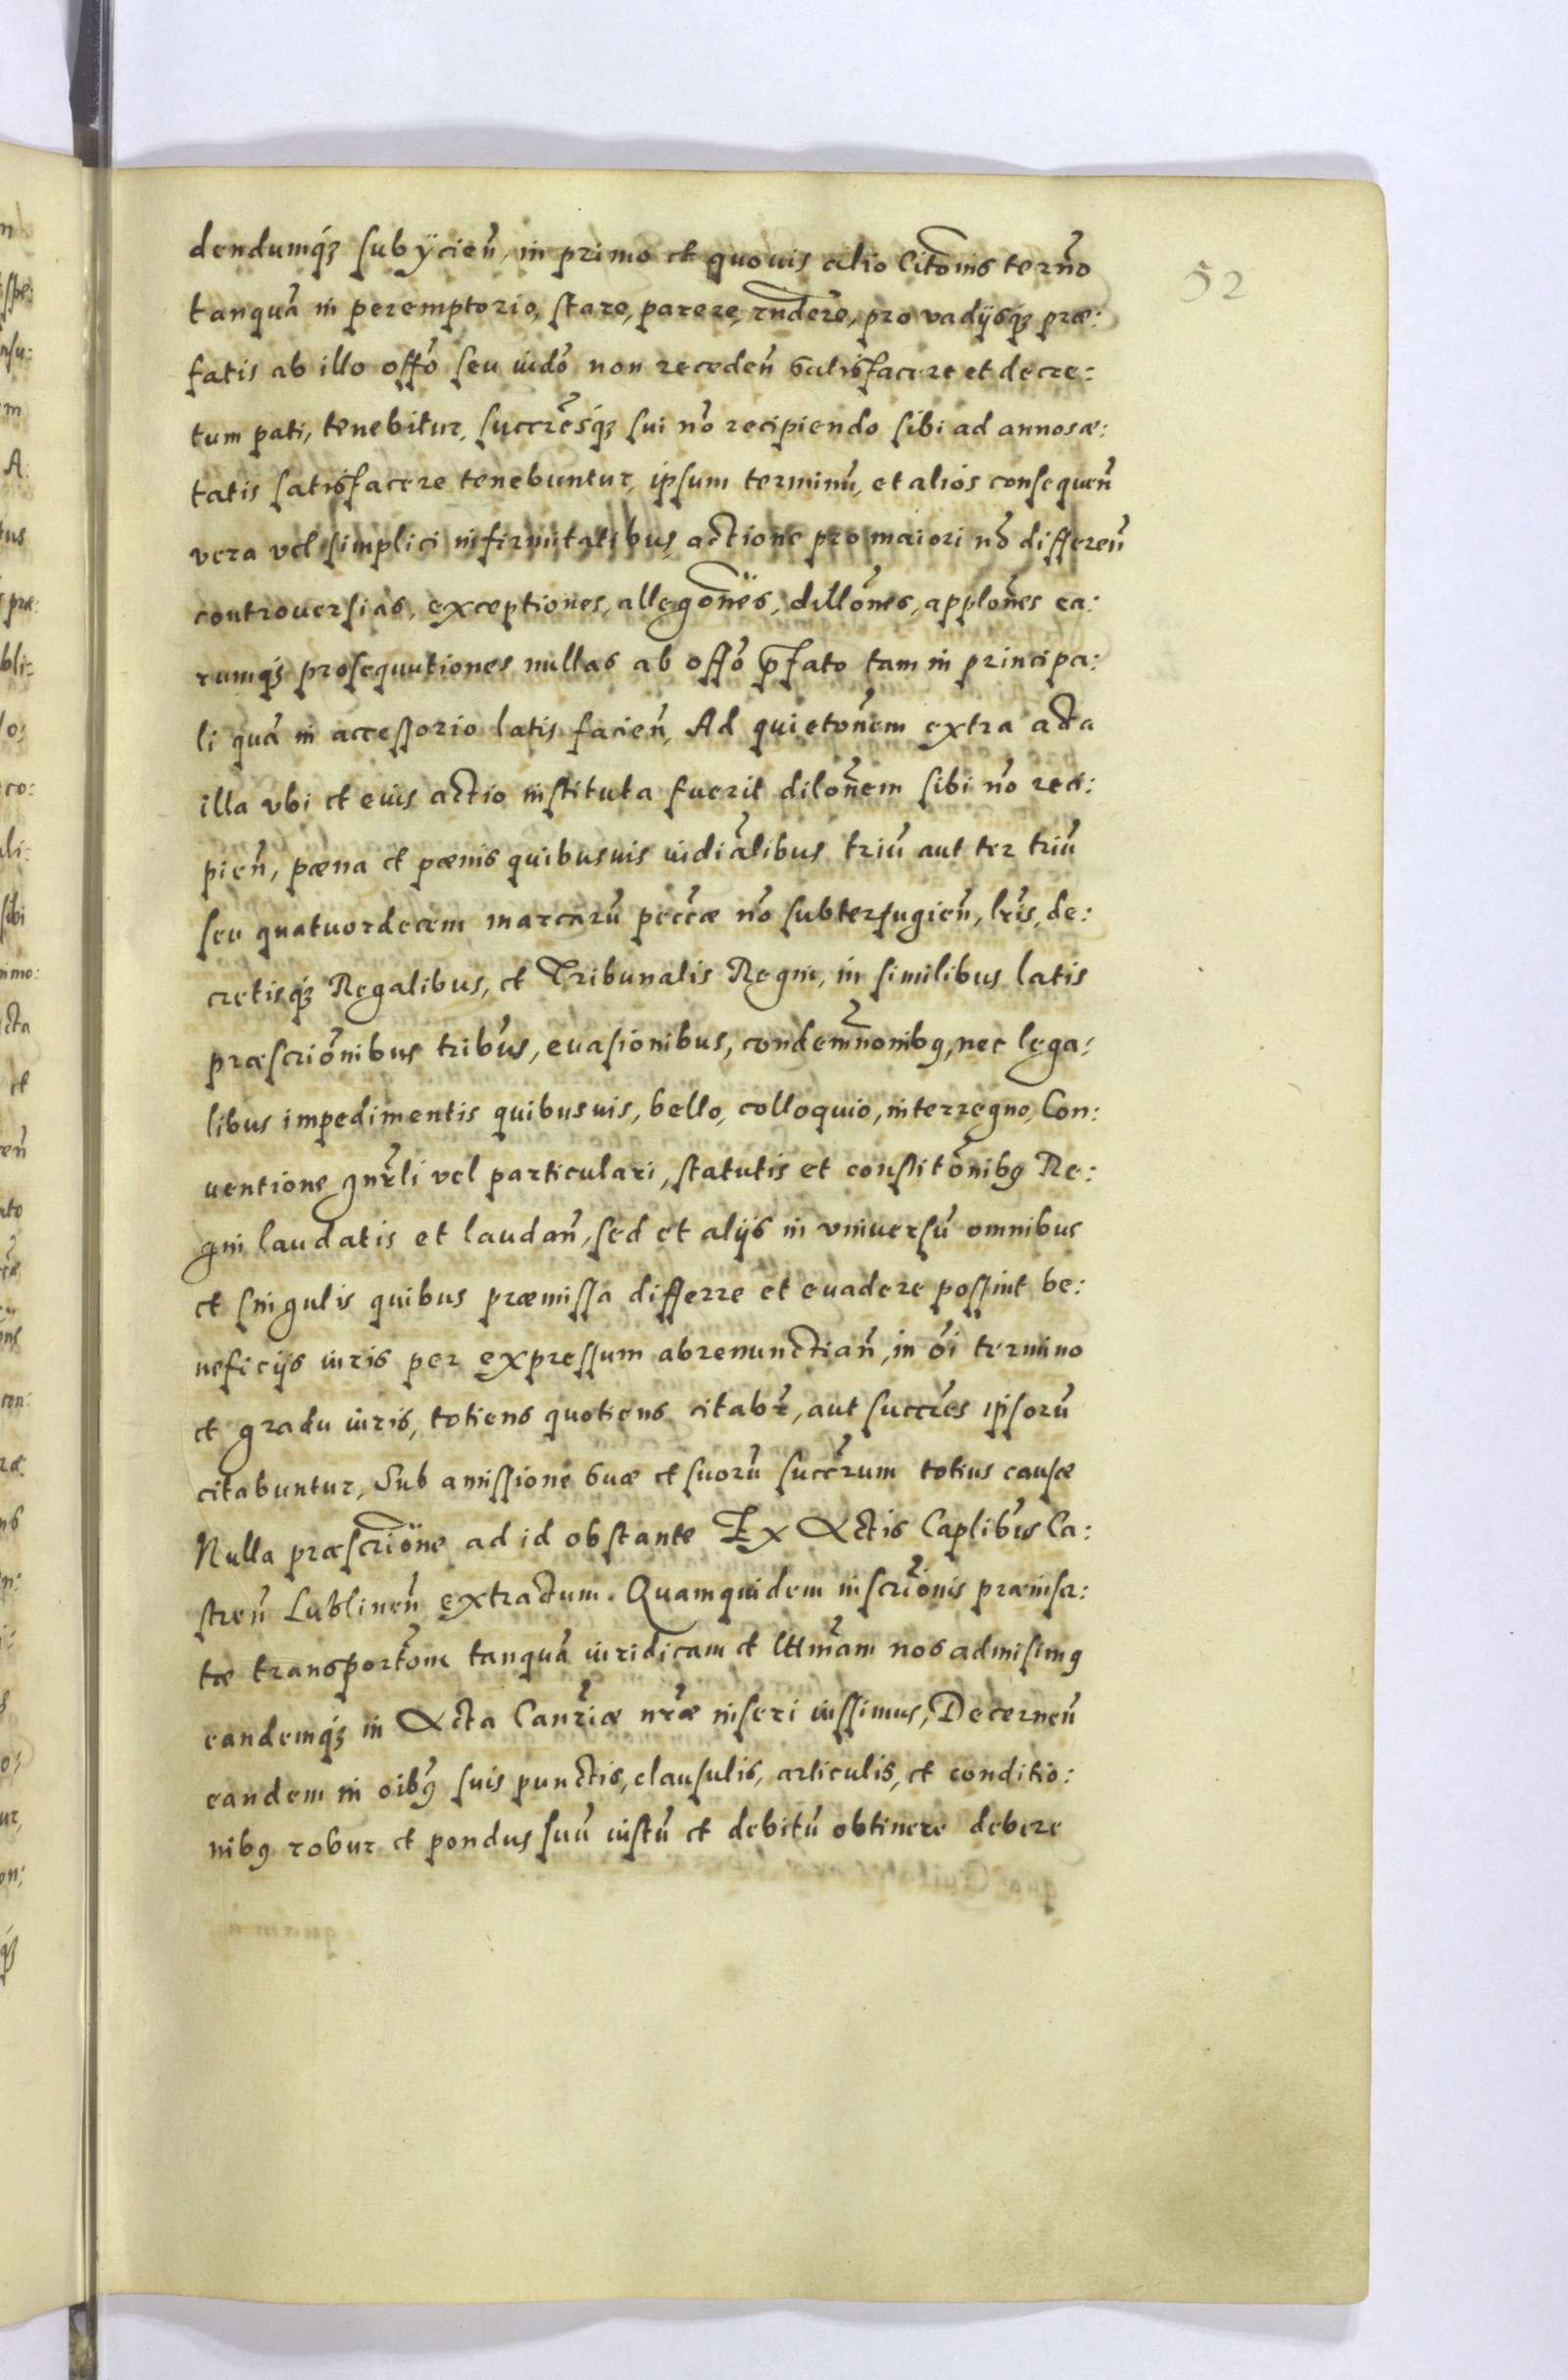 dendumq́ꝫ subÿcień, in primo et quouis alio Citõnis terńo
52
tanquã in peremptorio, stare, parere, rñdere, pro vadijsq́ꝫ præ:
fatis ab illo offõ seu iudõ non recedeń satisfacere et decre:
tum pati, tenebitur, succr̃esq́ꝫ sui nõ recipiendo sibi ad annosæ:
tatis satisfacere tenebuntur, ipsum terminũ, et alios consequeń
vera vel simplici infirmitatibus, actione pro maiori nõ differeń
controuersias, exceptiones, allegõnes, dillõnes, applõnes ea:
rumq́ꝫ prosequutiones nullas ab offõ p̃fato tam in principa:
li quã in accessorio latis facień, Ad quietõnem extra acta
illa vbi et eius actio instituta fuerit dilõnem sibi nõ reci:
pień, pæna et pænis quibusuis iudiãlibus triũ aut ter triũ
seu quatuordecem marcarũ pecc̃æ nõ subterfugień, lr̃is, de:
cretisq́ꝫ Regalibus, et Tribunalis Regni, in similibus latis
præscriõnibus tribũs, euasionibus, condem̃nonibꝰ, nec lega:
libus impedimentis quibusuis, bello, colloquio, interregno, Con:
uentione gnr̃li vel particulari, statutis et constitõnibꝰ Re:
gni laudatis et laudań, sed et alijs in vniuersũ omnibus
et singulis quibus præmissa differre et euadere possint be:
neficijs iuris per expressum abrenunctiań, in õi termino
et gradu iuris, totiens quotiens citabr̃, aut succr̃es ipsorũ
citabuntur, Sub amissione suæ et suorũ succr̃rum totius causæ
Nulla præscriõne ad id obstante Ex Actis Caplibũs Ca:
streń Lublineń extractum. Quamquidem inscriõnis præinser:
tæ transportõm tanquã iuridicam et lttm̃am nos admisimꝰ
eandemq́ꝫ in Acta Canr̃iæ nr̃æ inseri iussimus, Decerneń
eandem in oibꝰ suis punctis, clausulis, articulis, et conditio:
nibꝰ robur et pondus suũ iustũ et debitũ obtinere debere